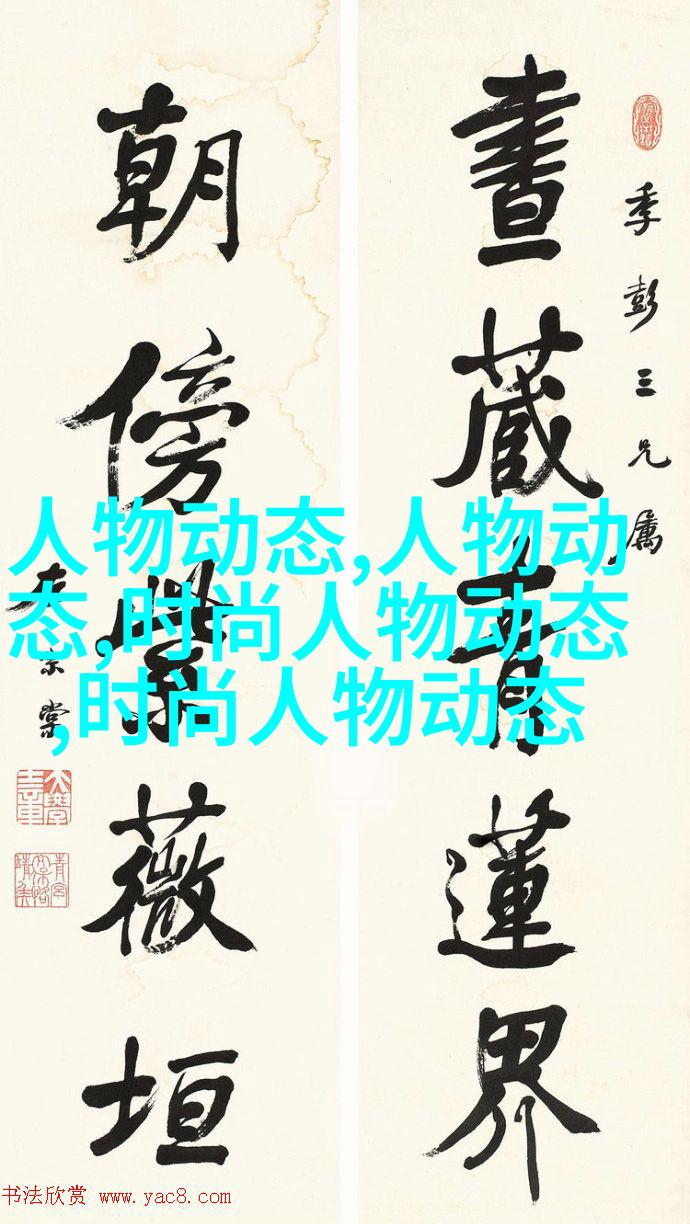 季彭三兄属
晝藏青蓮界
朝傍紫薇垣
左宗棠
人物动态,人物动
态,时尚人物动态
,时尚人物动态
书法欣赏 www.yac8.com